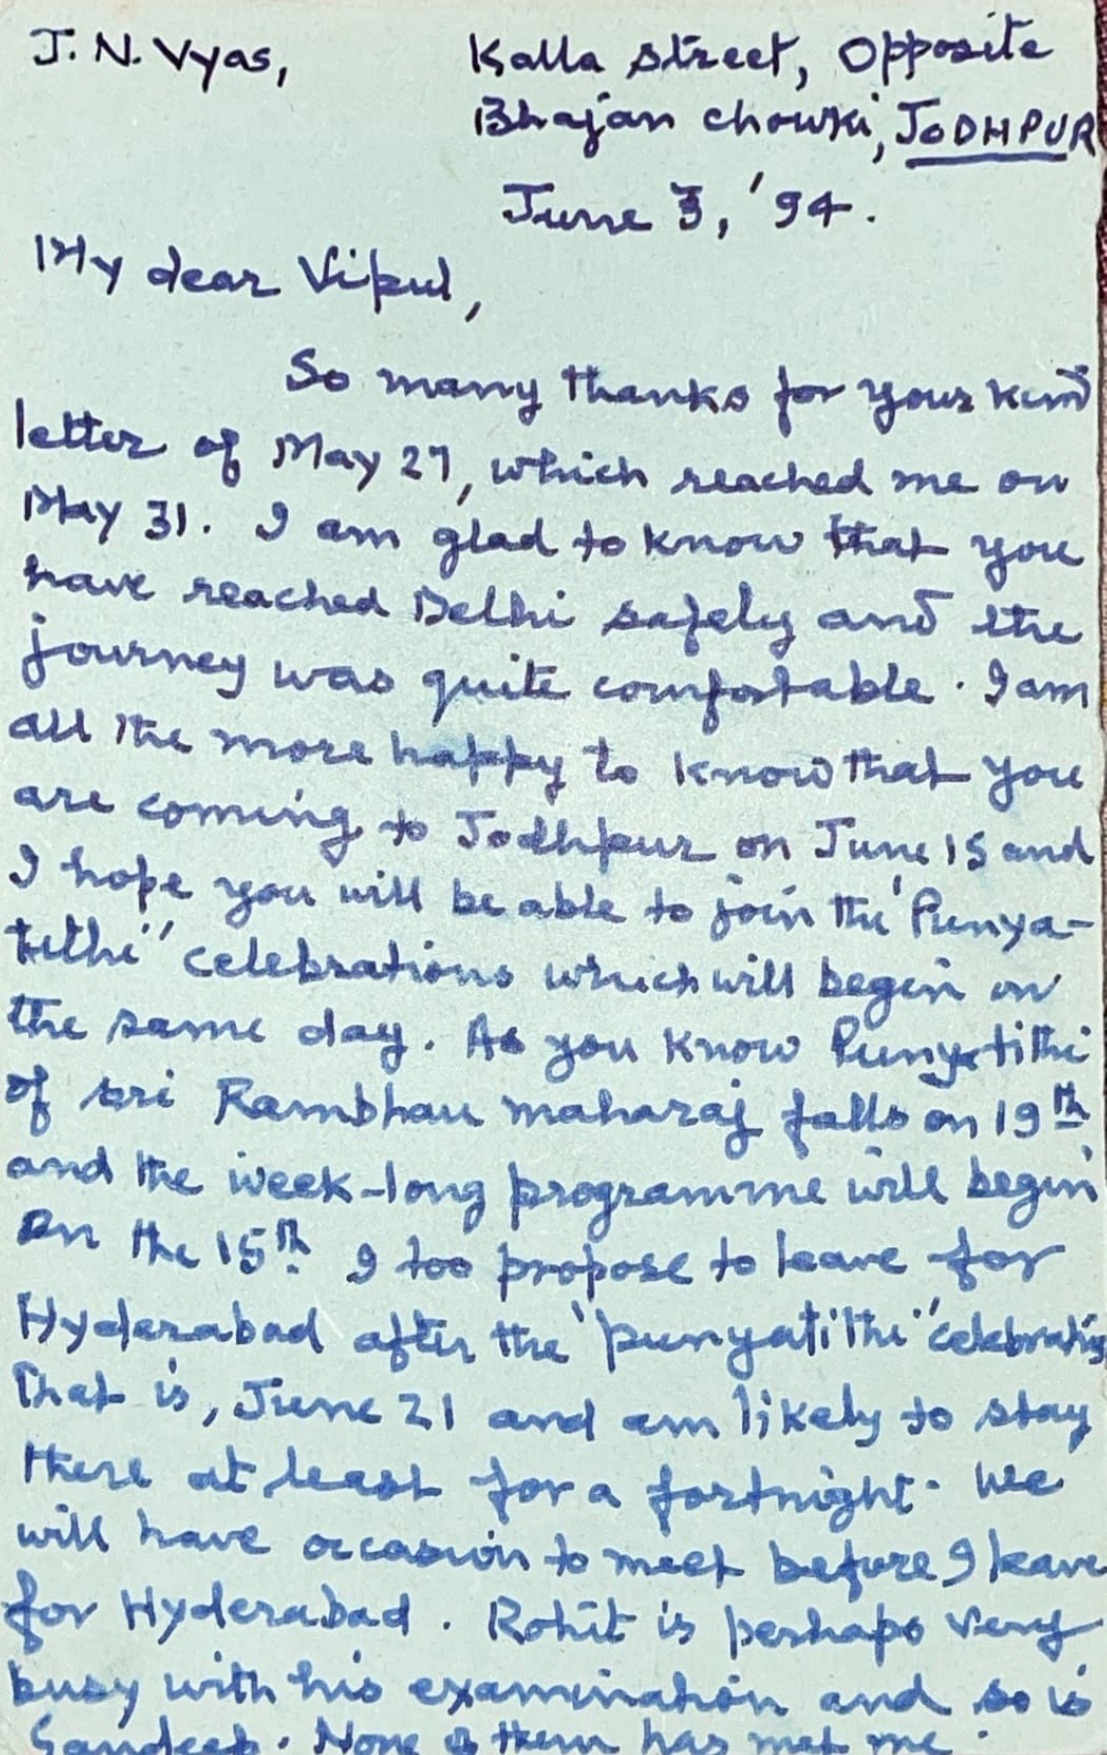 J. N. Vyas,
Kalla street, Opposite
Bhajan chowki, JODHPUR
June 3, '94.
My dear Vipul,
So many thanks for your kind
letter of May 27, which reached me on
May 31. I am glad to know that you
have reached Delhi safely and the
journey was quite comfortable. I am
all the more happy to know that you
are coming to Jodhpur on June 15 and
I hope you will be able to join the 'Punya-
tithi" celebrations which will begin on
the same day. As you know Punyatithi
of sri Rambhau maharaj falls on 19th
and the week-long programme will begin
on the 15th. I too propose to leave for
Hyderabad after the 'punyatithi" celebrations
That is, June 21 and am likely to stay
there at least for a fortnight. We
will have occasion to meet before I leave
for Hyderabad. Rohit is perhaps very
busy with his examination and so is
Sandeep. None of them has met me.